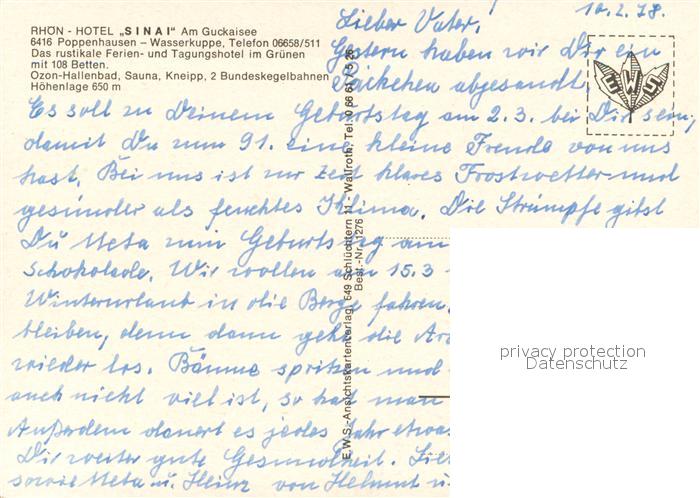 RHÖN - HOTEL „SINAI" Am Guckaisee
6416 Poppenhausen – Wasserkuppe, Telefon 06658/511
Das rustikale Ferien- und Tagungshotel im Grünen
mit 108 Betten.
Ozon-Hallenbad, Sauna, Kneipp, 2 Bundeskegelbahnen
Höhenlage 650 m
10.2.78.
Lieber Vater!
Gestern haben wir Dir ein
Päckchen abgesandt,
EWS
Es soll zu Deinem Geburtstag am 2.3. bei Dir sein,
damit Du zum 91. eine kleine Freude von uns
hast. Bei uns ist zur Zeit klares Frostwetter und
gesünder als feuchtes Klima. Die Strümpfe gibst
Du Meta zum Geburtstag am
Schokolade. Wir wollen am 15.3
Winterurlaub in die Berge fahren,
bleiben, denn dann geht die
wieder los. Bäume spritzen und
auch nicht viel ist, so hat man
Außerdem dauert es jedes Jahr etwas
Dir weiter gute Gesundheit.
sowie Meta u. Heinz von Helmut
E.W.S.-Ansichtskartenverlag, 649 Schlüchtern 11 - Wallroth, Tel. 0 66 61 / 5 26
Best.-Nr. 1276
privacy protection
Datenschutz